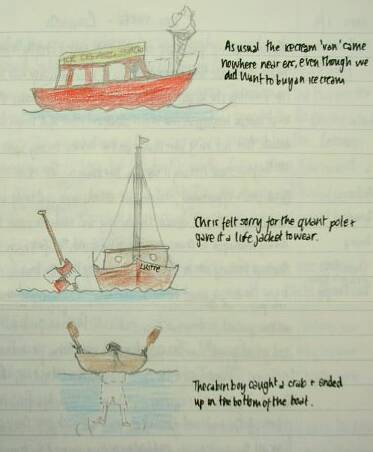 ICE CREAM
As usual the icecream 'van' came
nowhere near err, even though we
did want to buy an ice cream
Chris felt sorry for the quant pole +
gave it a life jacket to wear.
Lustre
The cabin boy caught a crab + ended
up in the bottom of the boat.